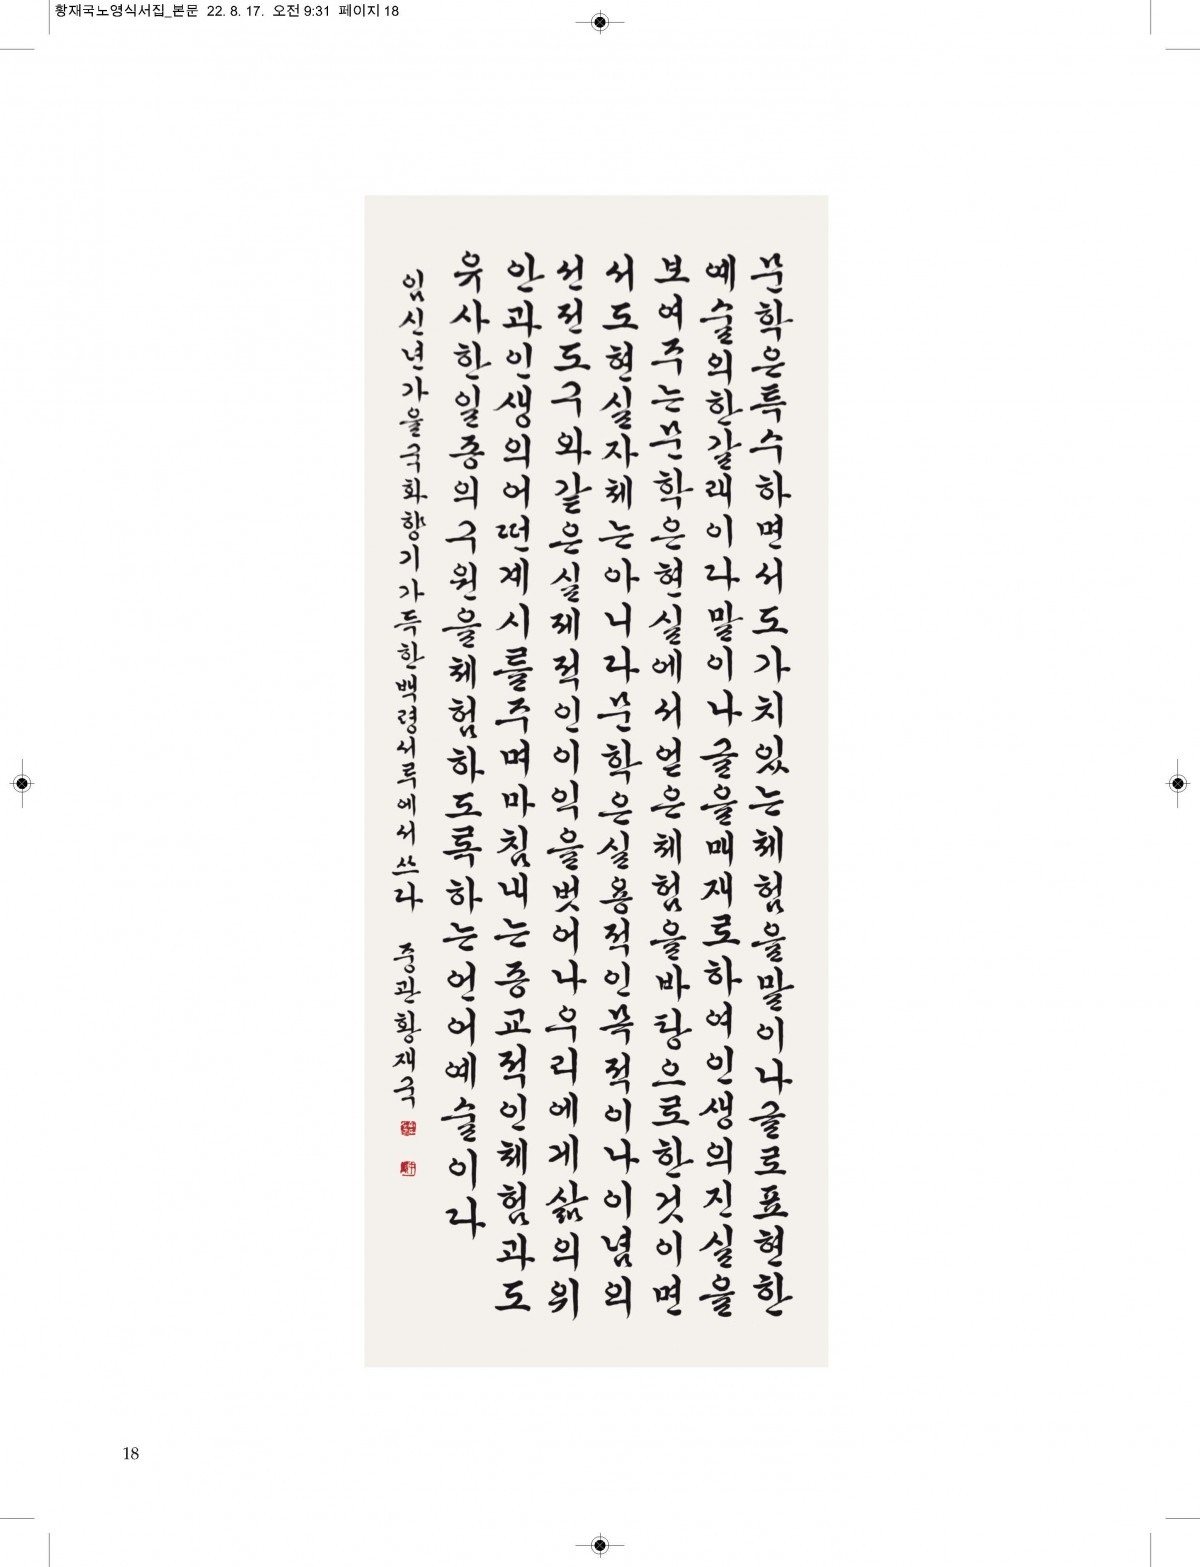 황재국노영식서집_본문 22. 8. 17. 오전 9:31 페이지 18
문학은특수하면서도가치있는체험을말이나글로표현한
예술의한갈래이라말이나글을매재로하여인생의진실을
보여주는문학은현실에서얻은체험을바탕으로한것이면
서도현실자체는아니라문학은실용적인목적이나이념의
선전도구와같은실제적인이익을벗어나우리에게삶의위
안과인생의어떤계시를주며마침내는종교적인체험과도
유사한일종의구원을체험하도록하는언어예술이라
임신년가을국화향기가득한백령서루에서쓰라 중관황재국
18